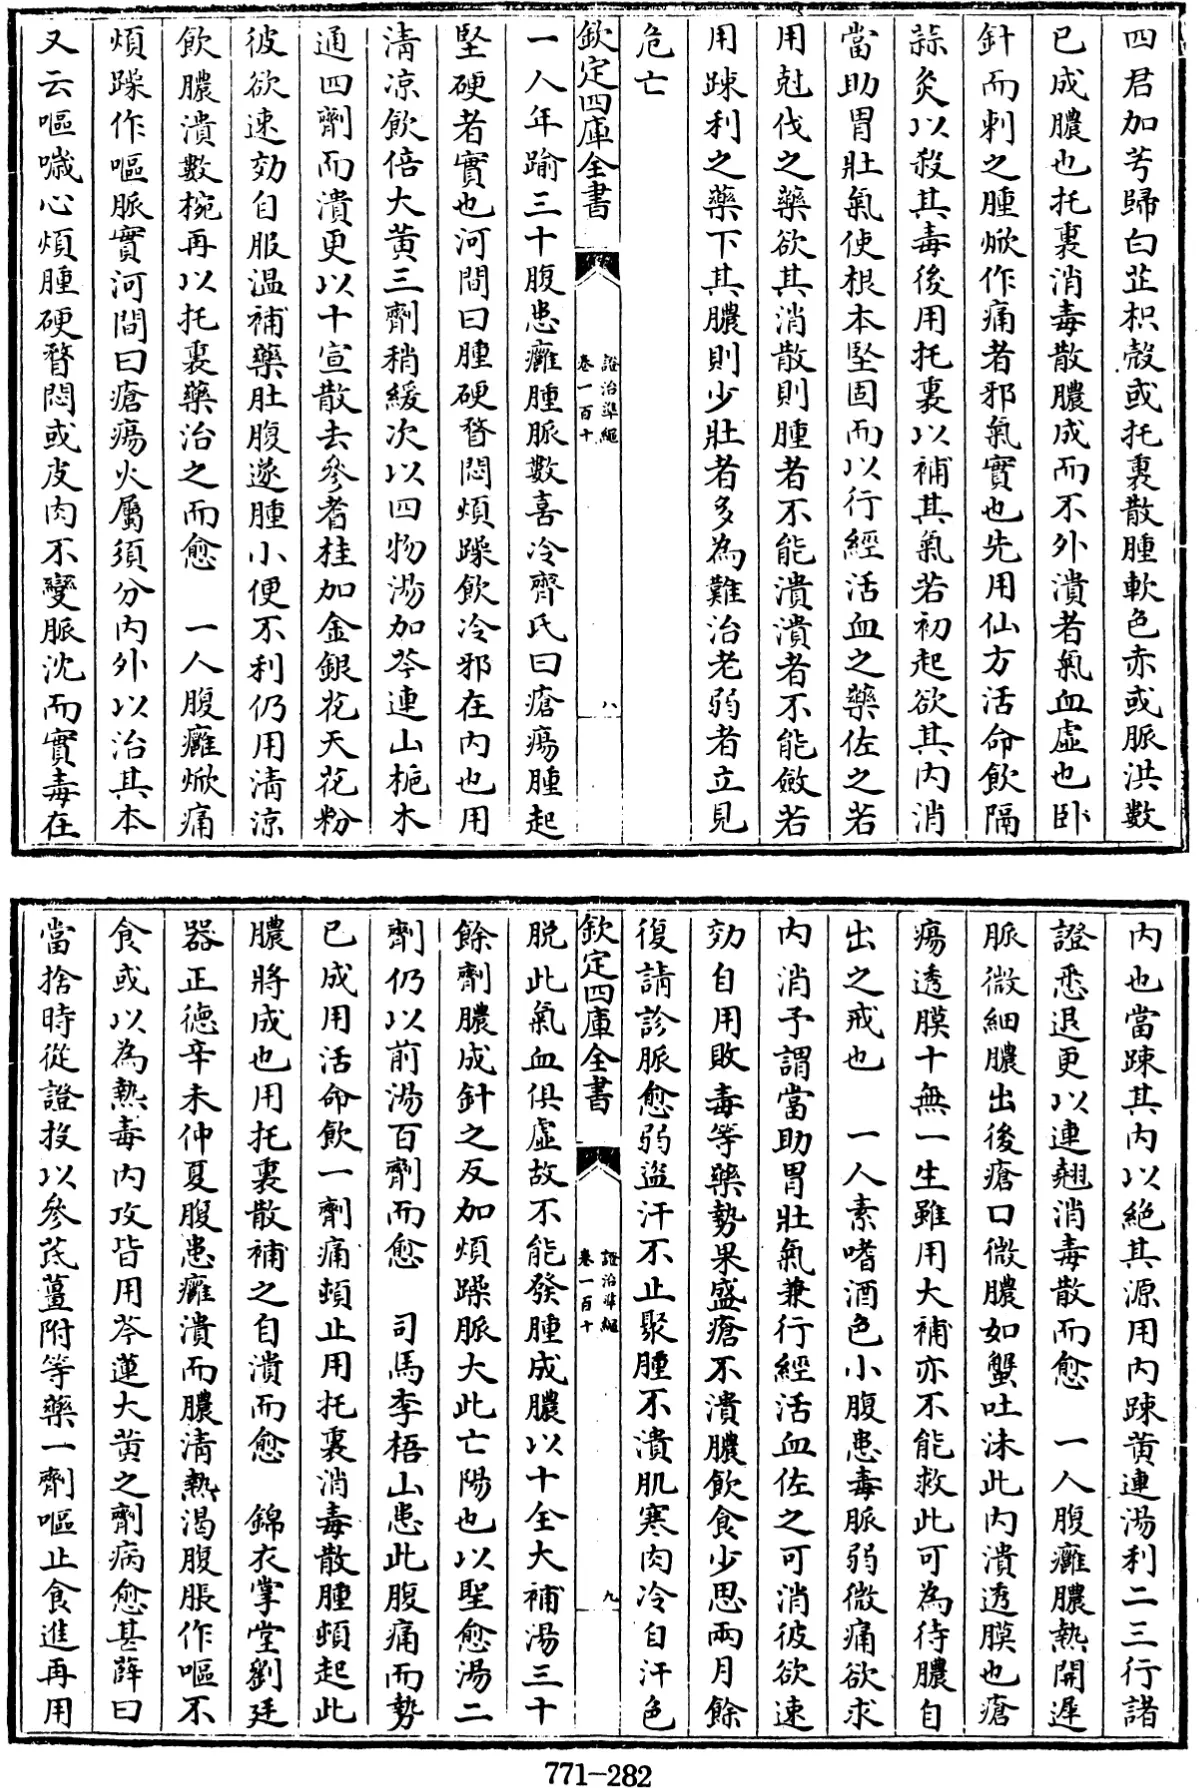 四君加芎歸白芷枳殼或托裏散腫軟色赤或脈洪數
已成膿也托裏消毒散膿成而不外潰者氣血虛也卧
針而刺之腫焮作痛者邪氣實也先用仙方活命飲隔
蒜灸以殺其毒後用托裏以補其氣若初起欲其内消
當助胃壯氣使根本堅固而以行經活血之藥佐之若
用尅伐之藥欲其消散則腫者不能潰潰者不能斂若
用踈利之藥下其膿則少壯者多為難治老弱者立見
危亡
欽定四庫全書
證治準繩
卷一百十
八
一人年踰三十腹患癰腫脈數喜冷齊氏曰瘡瘍腫起
堅硬者實也河間曰腫硬瞀悶煩躁飲冷邪在内也用
清凉飲倍大黄三劑稍緩次以四物湯加芩連山梔木
通四劑而潰更以十宣散去參耆桂加金銀花天花粉
彼欲速効自服温補藥肚腹遂腫小便不利仍用清凉
飲膿潰數椀再以托裏藥治之而愈　一人腹癰焮痛
煩躁作嘔脈實河間曰瘡瘍火屬須分内外以治其本
又云嘔噦心煩腫硬瞀悶或皮肉不變脈沈而實毒在
内也當踈其内以絶其源用内踈黄連湯利二三行諸
證悉退更以連翹消毒散而愈　一人腹癰膿熟開遲
脈微細膿出後瘡口微膿如蟹吐沫此内潰透膜也瘡
瘍透膜十無一生雖用大補亦不能救此可為待膿自
出之戒也　一人素嗜酒色小腹患毒脈弱微痛欲求
内消予謂當助胃壯氣兼行經活血佐之可消彼欲速
効自用敗毒等藥勢果盛瘡不潰膿飲食少思兩月餘
復請診脈愈弱盜汗不止聚腫不潰肌寒肉冷自汗色
欽定四庫全書
證治準繩
卷一百十
九
脱此氣血俱虚故不能發腫成膿以十全大補湯三十
餘劑膿成針之反加煩躁脈大此亡陽也以聖愈湯二
劑仍以前湯百劑而愈　司馬李梧山患此腹痛而勢
已成用活命飲一劑痛頓止用托裏消毒散腫頓起此
膿將成也用托裏散補之自潰而愈　錦衣掌堂劉廷
器正德辛未仲夏腹患癰潰而膿清熱渴腹脹作嘔不
食或以為熱毒内攻皆用芩蓮大黄之劑病愈甚薛曰
當捨時從證投以參芪薑附等藥一劑嘔止食進再用
771-282